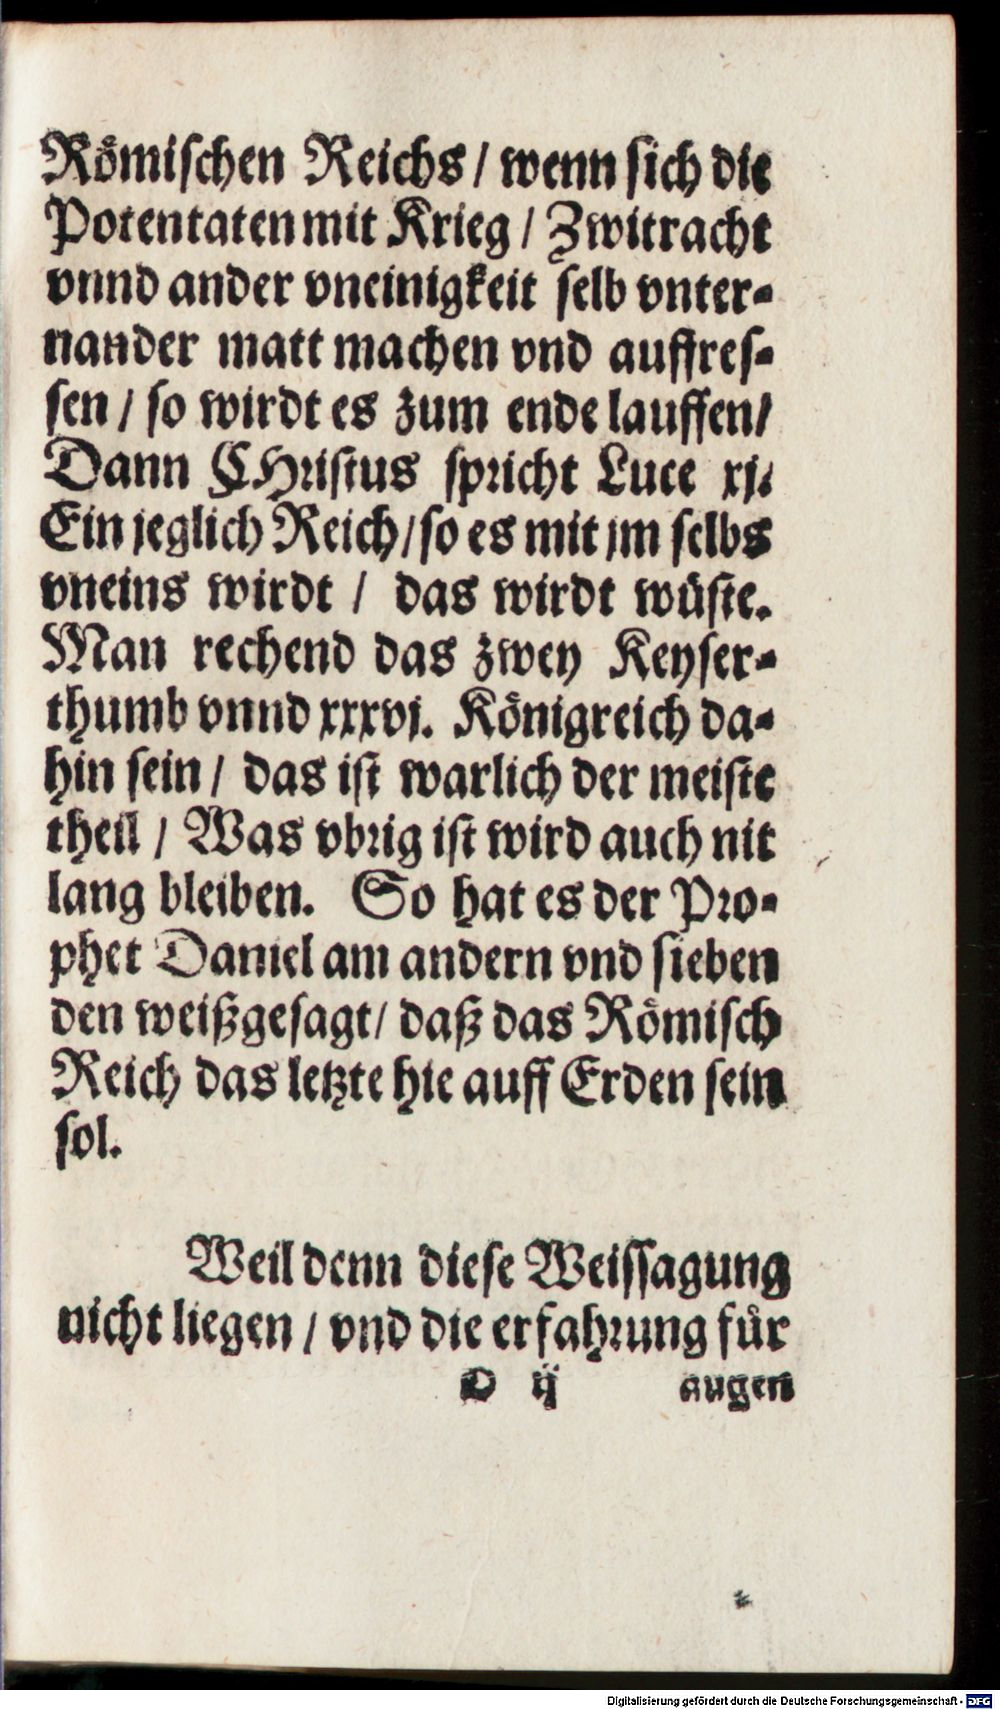 Römischen Reichs / wenn sich die
Potentaten mit Krieg / Zwitracht
vnnd ander vneinigkeit selb vnter-
nander matt machen vnd auffres-
sen / so wirdt es zum ende lauffen /
Dann CHristus spricht Luce xj.
Ein jeglich Reich / so es mit jm selbs
vneins wirdt / das wirdt wüste.
Man rechend das zwey Keyser-
thumb vnnd xxxvj. Königreich da-
hin sein / das ist warlich der meiste
theil / Was vbrig ist wird auch nit
lang bleiben. So hat es der Pro-
phet Daniel am andern vnd sieben
den weißgesagt / daß das Römisch
Reich das letzte hie auff Erden sein
sol.
Weil denn diese Weissagung
nicht liegen / vnd die erfahrung für
D ij augen
Digitalisierung gefördert durch die Deutsche Forschungsgemeinschaft - DFG